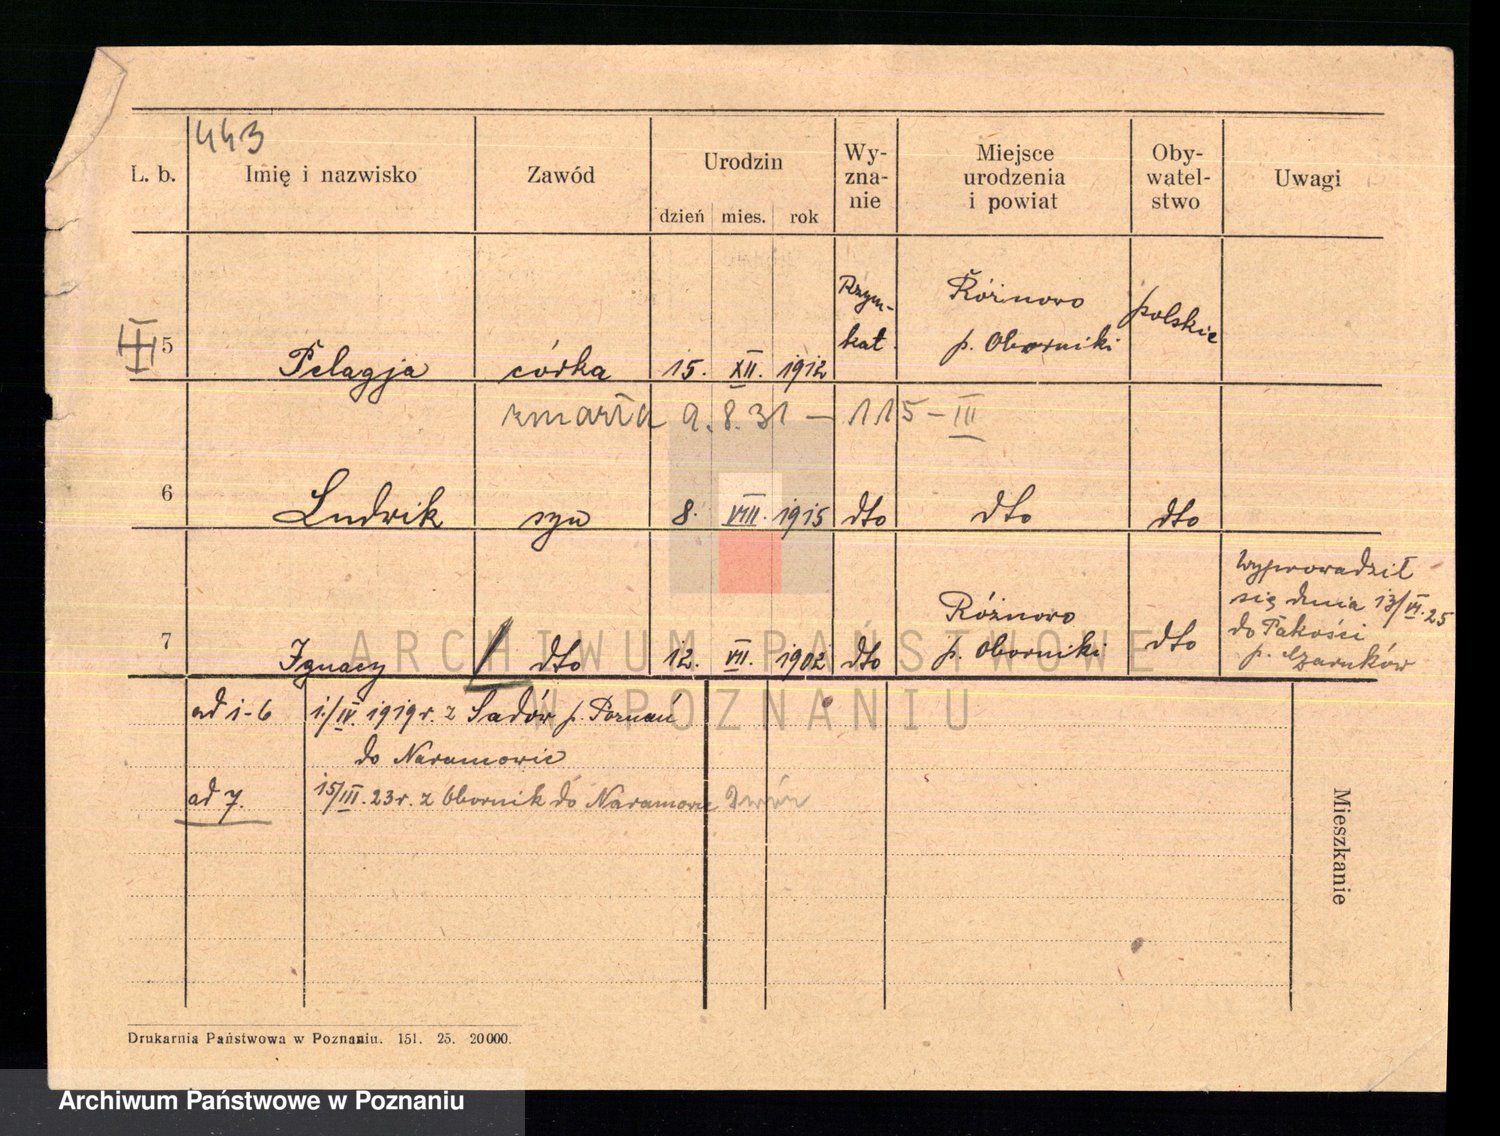 443
L. b.
Imię i nazwisko
Zawód
Urodzin
dzień mies. rok
Wy-
zna-
nie
Miejsce
urodzenia
i powiat
Oby-
watel-
stwo
Uwagi
5 Pelagja córka 15. XII. 1912
Rzym-
kat.
Różnowo
p. Oborniki
polskie
zmarła 9.8.31 – 115 – III
6 Ludwik syn 8. VIII. 1915 dto dto dto
7 Ignacy dto 12. VII. 1902 dto
Różnowo
p. Oborniki
dto
Wyprowadził
się dnia 13/VI.25
do Pakości
p. Czarnków
ad 1-6 1./IV. 1919 r. z Sadów p. Poznań
do Naramowic
ad 7. 15/III. 23 r. z Obornik do Naramowic Dwór
Mieszkanie
ARCHIWUM PAŃSTWOWE
W POZNANIU
Drukarnia Państwowa w Poznaniu. 151. 25. 20000.
Archiwum Państwowe w Poznaniu